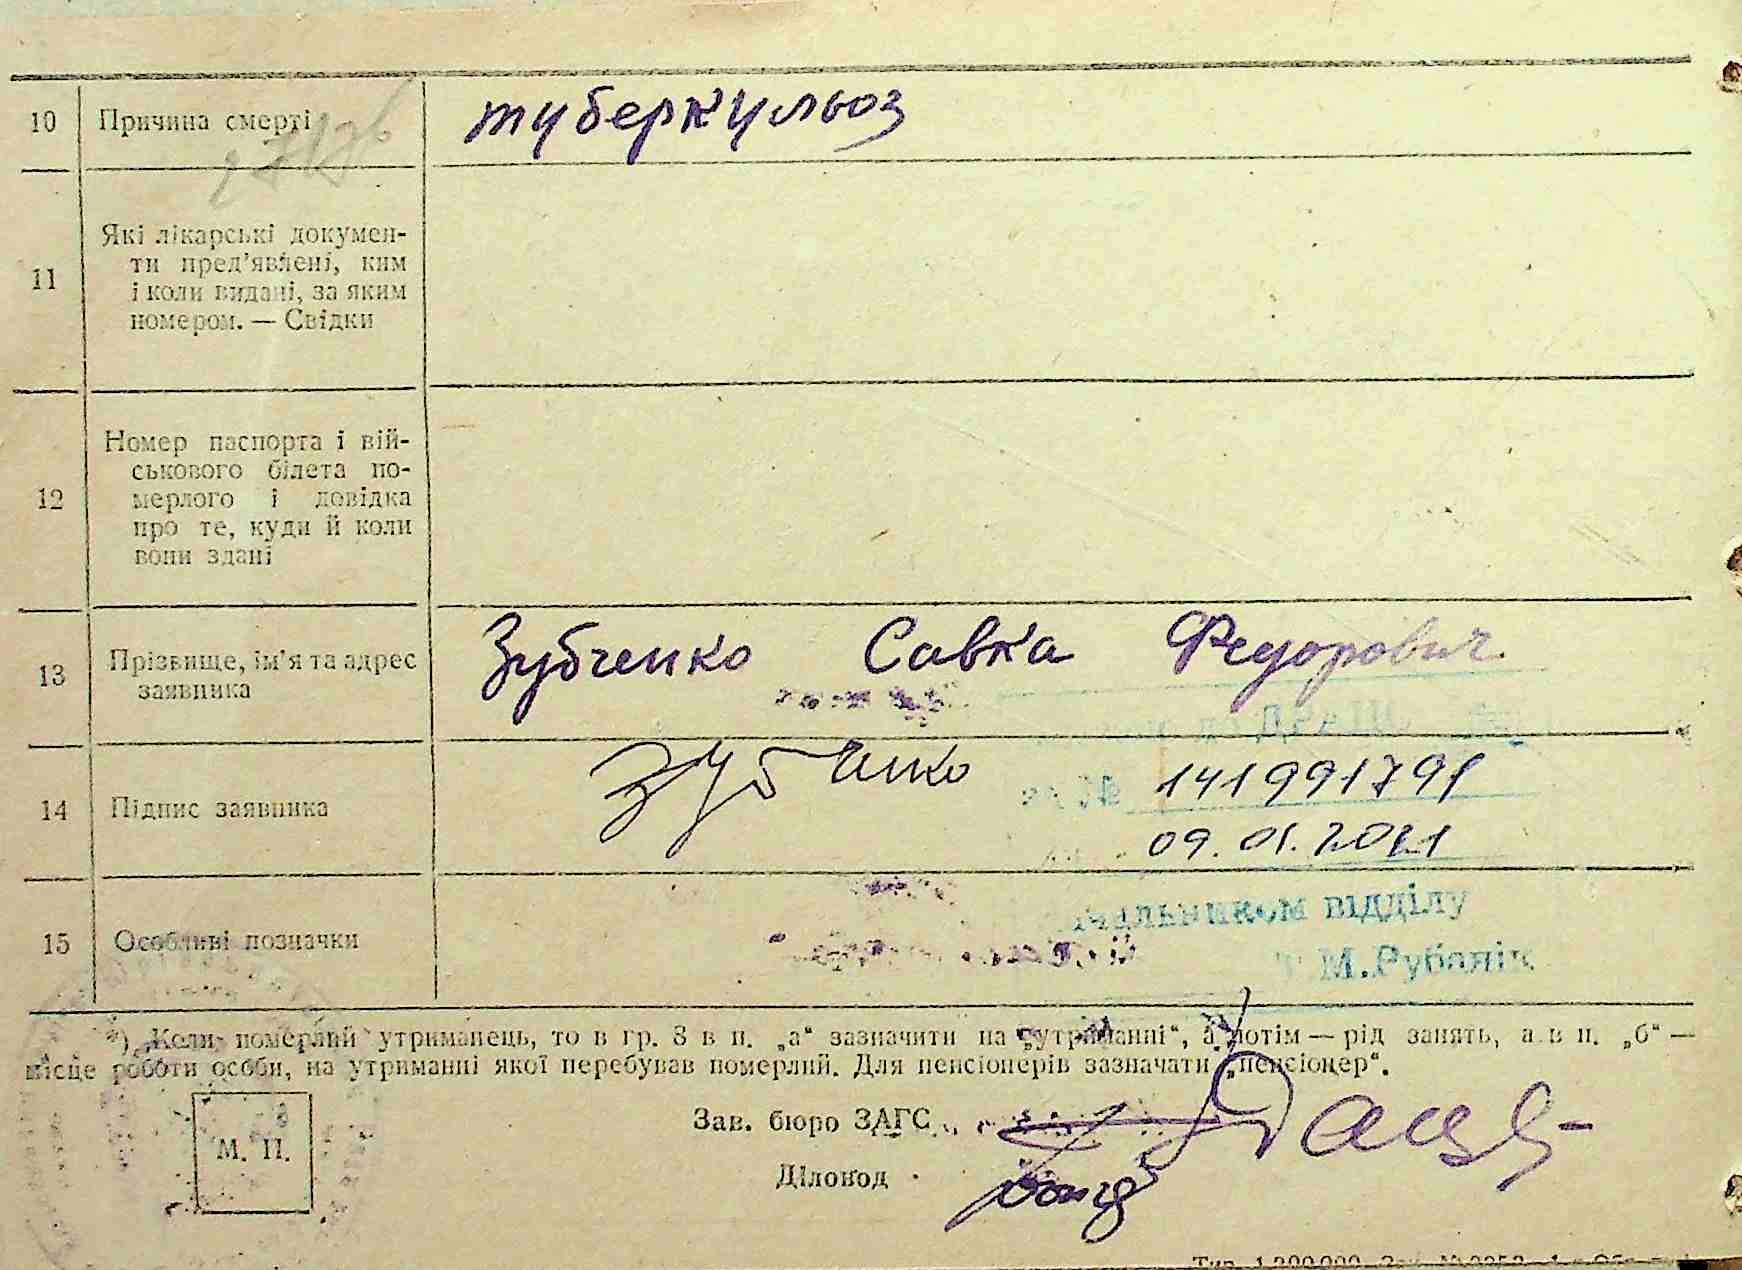 10 Причина смерті туберкульоз
11 Які лікарські докумен-
ти пред’явлені, ким
і коли видані, за яким
номером. — Свідки
12 Номер паспорта і вій-
ськового білета по-
мерлого і довідка
про те, куди й коли
вони здані
13 Прізвище, ім’я та адрес
заявника
Зубченко Савка Федорович
до ДРАЦС
14 Підпис заявника Зубченко
за № 141991791
09.01.2021
15 Особливі позначки
відділу
М.Рубанік
*) „Коли померлий утриманець, то в гр. 8 в п. „а“ зазначити на „утриманні“, а потім — рід занять, а в п. „б“ —
місце роботи особи, на утриманні якої перебував померлий. Для пенсіонерів зазначати „пенсіонер“.
М. П.
Зав. бюро ЗАГС
Діловод